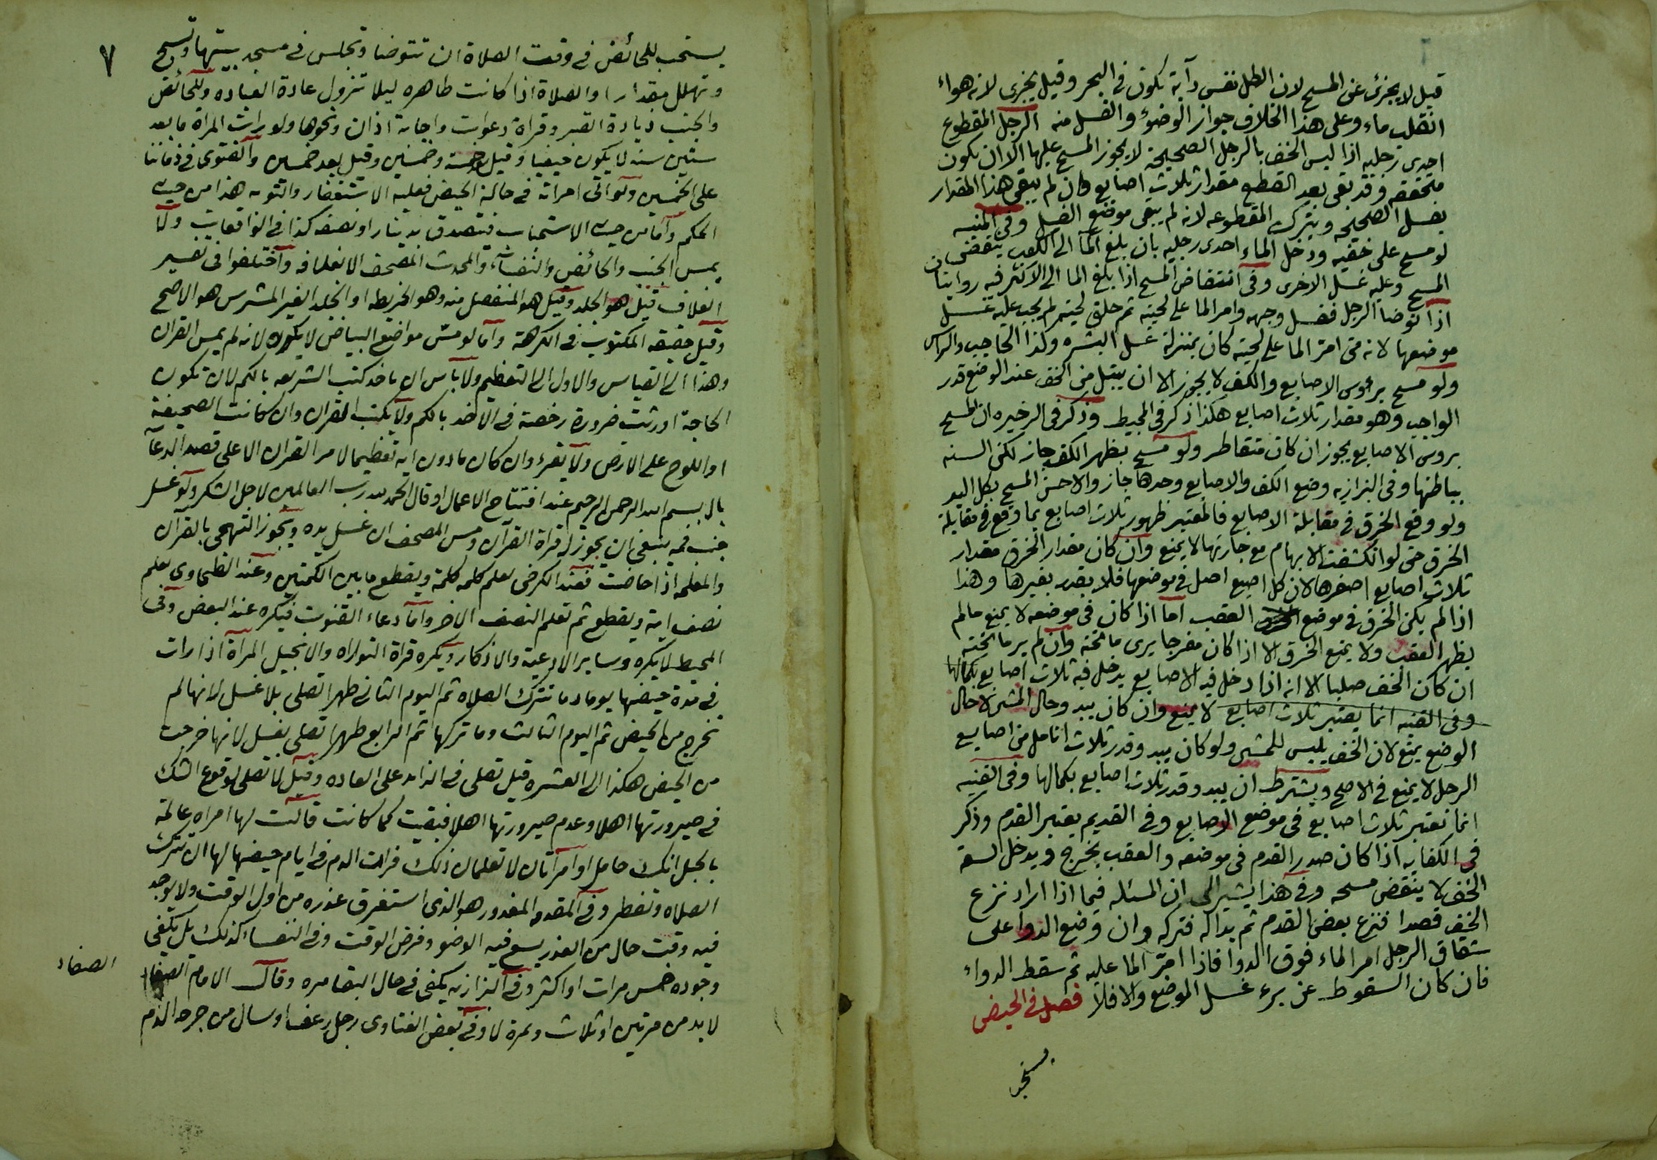 قيل لا يجزئ عن المسح لان الطل نفس دآبة تكون فى البحر وقيل يجزى لانه هواء
انقلب ماء وعلى هذا الخلاف جواز الوضوء والغسل منه الرجل المقطوع
احدى رجليه اذا لبس الخف بالرجل الصحيحة لا يجوز المسح عليها الا ان يكون
متخففه وقد بقى بعد القطع مقدار ثلاث اصابع وان لم يبقى هذا المقدار
يغسل الصحيحه ويترك المقطوعه لانه لم يبقى موضع الغسل وفى المنيه
لو مسح على خفيه ودخل الماء احدى رجليه بان بلغ الما الى الكعب ينتقض
المسح وعليه غسل الاخرى وفى انتقاض المسح اذا بلغ الما الى الاكثر فيه روايتان
اذا توضا الرجل فغسل وجهه وامر الما على لحيته ثم حلق لحيته لم يجب عليه غسل
موضعها لانه متى امر الما على لحيته كان بمنزلة غسل البشره ولذا الحاجب والراس
ولو مسح برؤس الاصابع والكف لا يجوز الا ان يبتل من الخف عند الوضع قدر
الواجب وهو مقدار ثلاث اصابع هكذا ذكر فى المحيط وذكر فى الذخيره ان المسح
بروس الاصابع يجوز ان كان متقاطر ولو مسح بظهر الكف جاز لكن السنه
بباطنها وفى البزازيه وضع الكف والاصابع وحدها جاز والاحسن المسح بكل اليد
ولو وقع الخرق فى مقابلة الاصابع فالمعتبر ظهور ثلاث اصابع بما وقع فى مقابلة
الخرق حتى لو انكشفت الابهام مع جارتها لا يمنع وان كان مقدار الخرق مقدار
ثلاث اصابع اصغرها لان كل اصبع اصل فى موضعها فلا يقدر بغيرها وهذا
اذا لم يكن الخرق فى موضع العقب اما اذا كان فى موضعه لا يمنع مالم
يظهر العقب ولا يمنع الخرق الا اذا كان منفرجا يرى ما تحته وان لم ير ما تحته
ان كان الخف صلبا الا انه اذا دخل فيه الاصابع يدخل فيه ثلاث اصابع بكمالها
وفى القنيه انما يعتبر ثلاث اصابع لا يمنع وان كان يبدو حال المشى لا حال
الوضع يمنع لان الخف يلبس للمشى ولو كان يبدو قدر ثلاث انامل من اصابع
الرجل لا يمنع فى الاصح ويشترط ان يبدو قدر ثلاث اصابع بكمالها وفى القنيه
انما تعتبر ثلاث اصابع فى موضع الاصابع وفى القديم يعتبر القدم وذكر
فى الكفايه اذا كان صدر القدم فى موضعه والعقب يخرج ويدخل السعة
الخف لا ينقض مسحه وفى هذا يشير الى ان المسئله فيما اذا اراد نزع
الخف قصدا فنزع بعض القدم ثم بداله فتركه وان وضع الدوا على
شقاق الرجل امر الماء فوق الدوا فاذا امر الما عليه ثم سقط الدواء
فان كان السقوط عن برء غسل الموضع والا فلا فصل فى الحيض
يستحب
٧
يستحب للحائض فى وقت الصلاة ان تتوضا وتجلس فى مسجد بيتها وتسبح
وتهلل مقدار اداء الصلاة اذا كانت طاهره ليلا تزول عادة العباده وللحائض
والجنب زيارة القبر وقراة دعوات واجابة اذان ونحوها ولو رات المراة ما بعد
ستين سنه لا يكون حيضا وقيل خمسة وخمسين وقيل بعد خمسين والفتوى فى زماننا
على الخمسين ولو اتى امراته فى حالة الحيض فعليه الاستغفار والتوبه هذا من حيث
الحكم واما من حيث الاستحباب فيتصدق بدينار او نصفه كذا فى الواقعات ولا
يمس الجنب والحائض والنفساء والمحدث المصحف الا بغلافه واختلفوا فى تفسير
الغلاف قيل هو الجلد وقيل هو المنفصل منه وهو الخريطه او الجلد الغير المشرس هو الاصح
وقيل حقيقه المكتوب فى الكراهة واما لو مس مواضع البياض لا يكره لانه لم يمس القران
وهذا الى القياس والاول الى التعظيم ولا باس ان ياخذ كتب الشريعه بالكم لان تكون
الحاجة اورثت ضرورة رخصة فى الاخذ بالكم ولا يكتب القران وان كانت الصحيفة
او اللوح على الارض ولا يقرء وان كان ما دون اية تعظيما لامر القران الا على قصد الدعا
بان بسم الله الرحمن الرحيم عند افتتاح الاعمال او قال الحمد لله رب العالمين لاجل الشكر ولو غسل
جنب فمه ينبغى ان يجوز له قراة القرآن ومس المصحف ان غسل يده ويجوز التهجى بالقرآن
والمعلمه اذا حاضت فعند الكرخى تعلم كلمه كلمة ويقطع ما بين الكلمتين وعند الطحاوى تعلم
نصف اية ويقطع ثم تعلم النصف الاخر واما دعاء القنوت فيكره عند البعض وفى
المحيط لا يكره وساير الادعية والاذكار ويكره قراة التوراه والانجيل المرآة اذا رات
فى مدة حيضها يوما دما تترك الصلاه ثم اليوم الثانى طهرا تصلى بلا غسل لانها لم
تخرج من الحيض ثم اليوم الثالث وما تركها ثم الرابع طهرا تصلى بغسل لانها خرجت
من الحيض هكذا الى العشره وقيل تصلى فى الزايد على العاده وقيل لا تصلى لوقوع الشك
فى صيرورتها اهلا وعدم صيرورتها اهلا فبقيت كما كانت قالت لها امراه عالمة
بالحبل انك حامل او امرآتان لا تعلمان ذلك فرات الدم فى ايام حيضها لها ان تترك
الصلاه وتفطر وفى المقدمه المعذور هو الذى استغرق عذره من اول الوقت ولا يوجد
فيه وقت خال من العذر يسع فيه الوضو وفرض الوقت وفى النفساء كذلك بل يكفى
وجوده خمس مرات او اكثر وفى البزازيه يكفى فى حال البقا مره وقال الامام الصفار
لا بد من مرتين او ثلاث ومرة لا وفى بعض الفتاوى رجل رعف او سال من جرحه الدم
الصفار